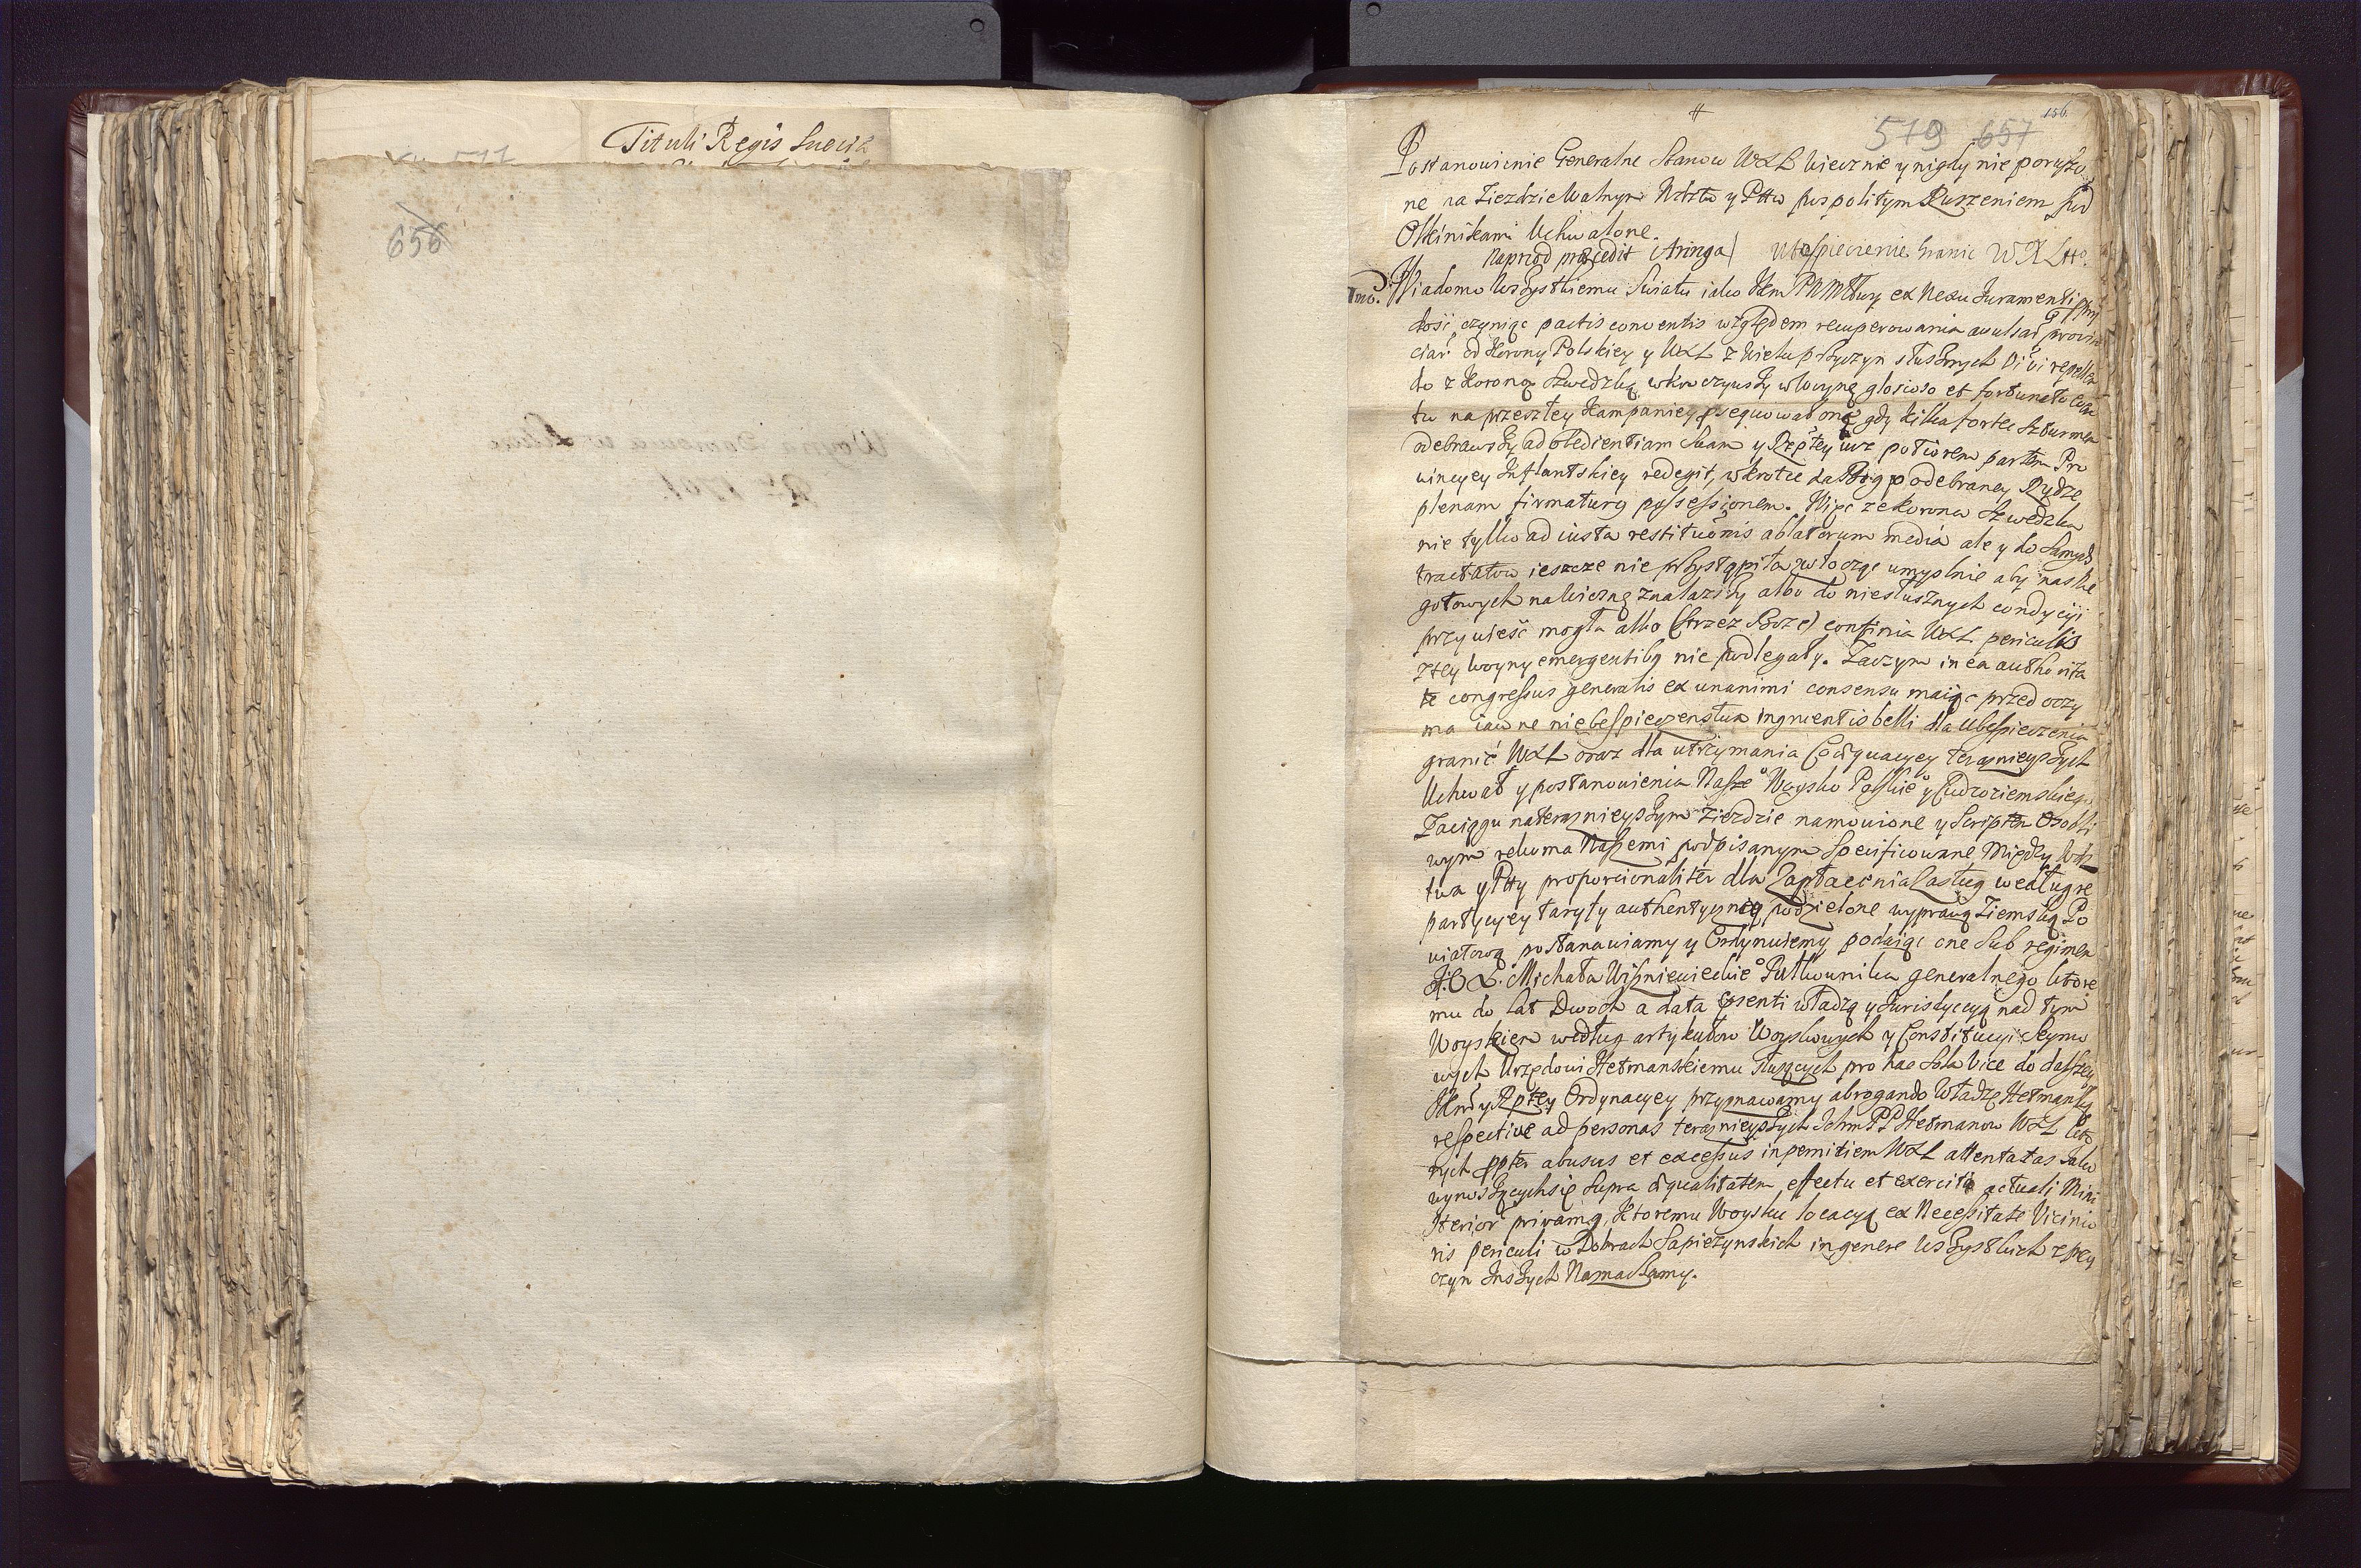 Tituli Regis Sueciæ
656
Woyna Domowa w Litwie
Rº 1701.
#
156.
519 657
Postanowienie Generalne Stanow WXL Wiecznie y nigdy nie poruszo
ne na Ziezdzie Walnym Wdztw y Pttw pospolitym Ruszeniem pod
Olkinikami Uchwalone.
Naprzod praecedit Aringa) Ubespieczenie Granic W X Ltto.
Imo. Wiadomo wszystkiemu Swiatu iako Krl PNMłwy ex Nexu Juramenti
dosić czyniąc pactis conventis względem recuperowania avulsar provin
ciar od Korony Polskiey y WXL z wielu przyczyn słusznych vi vi repellen
do z Koroną Szwedzką wkroczywszy w woynę glorioso et fortunato
tu na przeszłey Kampaniey prosequowaną gdy kilka fortec szturmem
odebrawszy ad obedientiam Suam y Rzptey iuż potiorem partem Pro
wincyey Inflantskiey redegit, wkrotce da Bog po odebraney Rydze
plenam firmaturus possessionem. Więc ze korona Szwedzka
nie tylko ad iusta restitutionis ablatorum media ale y do samych
tractatow ieszcze nie przystąpiła zwłocząc umyslnie aby nas nie
gotowych na wiosnę znalazszy albo do niesłusznych condycyi
przywieść mogła albo (strzez Boze) confinia WXL periculis
z tey woyny emergentibus nie podlegały. Zaczym in ea authorita
te congressus generalis ex unanimi consensu maiąc przed oczy
ma iawne niebespieczenstwa ingruentis belli dla Ubespieczenia
granic WXL oraz dla utrzymania Coæquacyey teraznieyszych
Uchwał y postanowienia Naszeº Woysko Polskieº y Cudzoziemskiego
Zaciągu na teraznieyszym Ziezdzie namowione y Scriptem Osobli
wym rekoma Naszemi podpisanym specificowane Między Wdz
twa y Ptty proporcionaliter dla Zapłacenia Zasług według re
partycyey taryfy authentyczney podzielone wyprawą Ziemską Po
wiatową postanawiamy y Ordynuiemy podaiąc one sub regimen
J.O.X. Michała Wiszniewieckieº Pułkownika generalnego ktore
mu do lat Dwoch a data psenti władzą y Jurisdyccyą nad tym
Woyskiem według artykułow Woyskowych y Constitucyi Seymo
wych Urzędowi Hetmanskiemu słuzących pro hac sola vice do dalszey
Krla y Rzptey Ordynacyey przyznawamy abrogando Władzę Hetmanską
respective ad personas teraznieyszych Ichm PP Hetmanow WXL kto
rych ppter abusus et excessus in perniciem WXL attentatas iako
wynoszących się supra æqualitatem effectu et exercitio actuali Mini
sterior privamus, Ktoremu Woysku locacyą ex Necessitate Vicinio
ris periculi w Dobrach Sapiezynskich in genere wszystkich z przy
czyn inszych Naznaczamy.